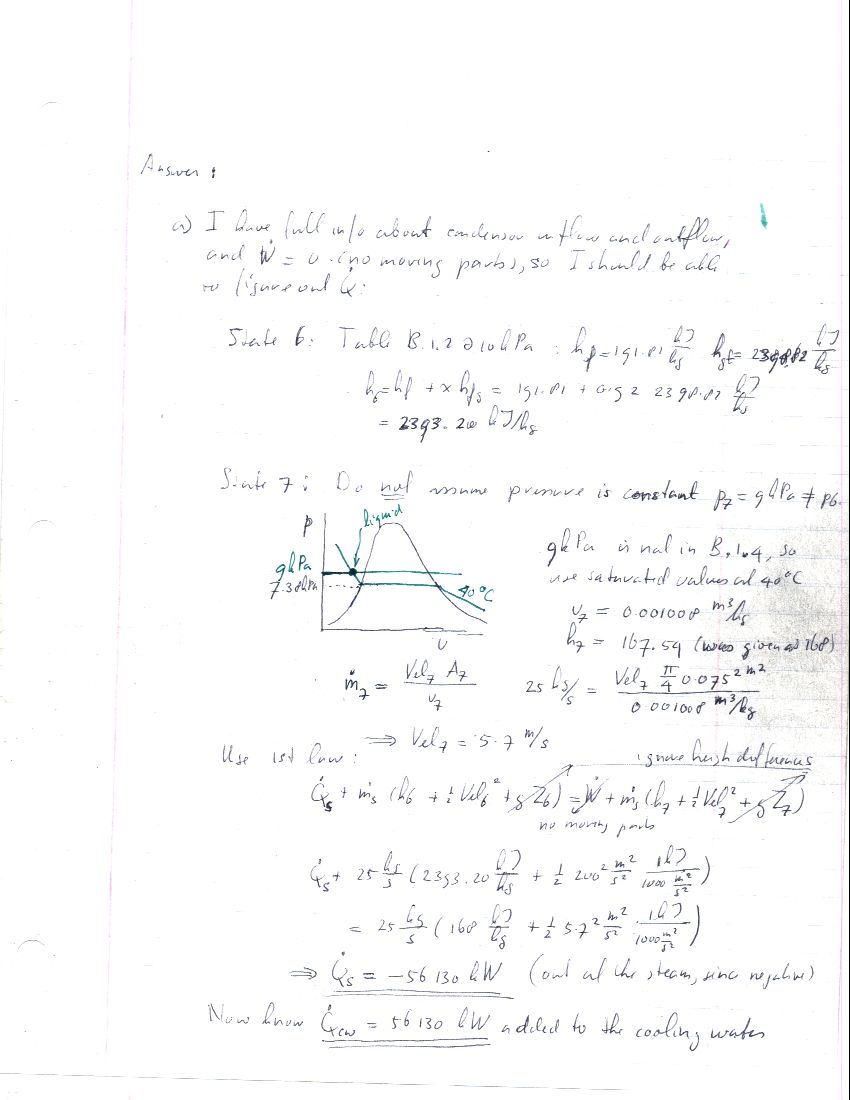 Answer:
a) I have full info about condensor inflow and outflow,
and Ẇ = 0 (no moving parts), so I should be able
to figure out Q̇:
State 6: Table B.1.2 @ 10 kPa : hf = 191.81 kJ/kg hfg = 2392.82 kJ/kg
h6 = hf + x hfg = 191.81 + 0.92 2392.82 kJ/kg
= 2393.20 kJ/kg
State 7: Do not assume pressure is constant p7 = 9 kPa ≠ p6.
P
liquid
9 kPa
7.38 kPa
40°C
v
9 kPa is not in B.1.4, so
use saturated values at 40°C
v7 = 0.001008 m³/kg
h7 = 167.54 (was given as 168)
ṁ7 = Vel7 A7 / v7 25 kg/s = Vel7 π/4 0.075² m² / 0.001008 m³/kg
⇒ Vel7 = 5.7 m/s
Use 1st law: ignore heigh differences
Q̇s + ṁs (h6 + ½ Vel6² + g Z6) = Ẇ + ṁs (h7 + ½ Vel7² + g Z7)
no moving parts
Q̇s + 25 kg/s (2393.20 kJ/kg + ½ 200² m²/s² 1 kJ / 1000 m²/s²)
= 25 kg/s (168 kJ/kg + ½ 5.7² m²/s² 1 kJ / 1000 m²/s²)
⇒ Q̇s = −56 130 kW (out of the steam, since negative)
Now know Q̇cw = 56 130 kW added to the cooling water